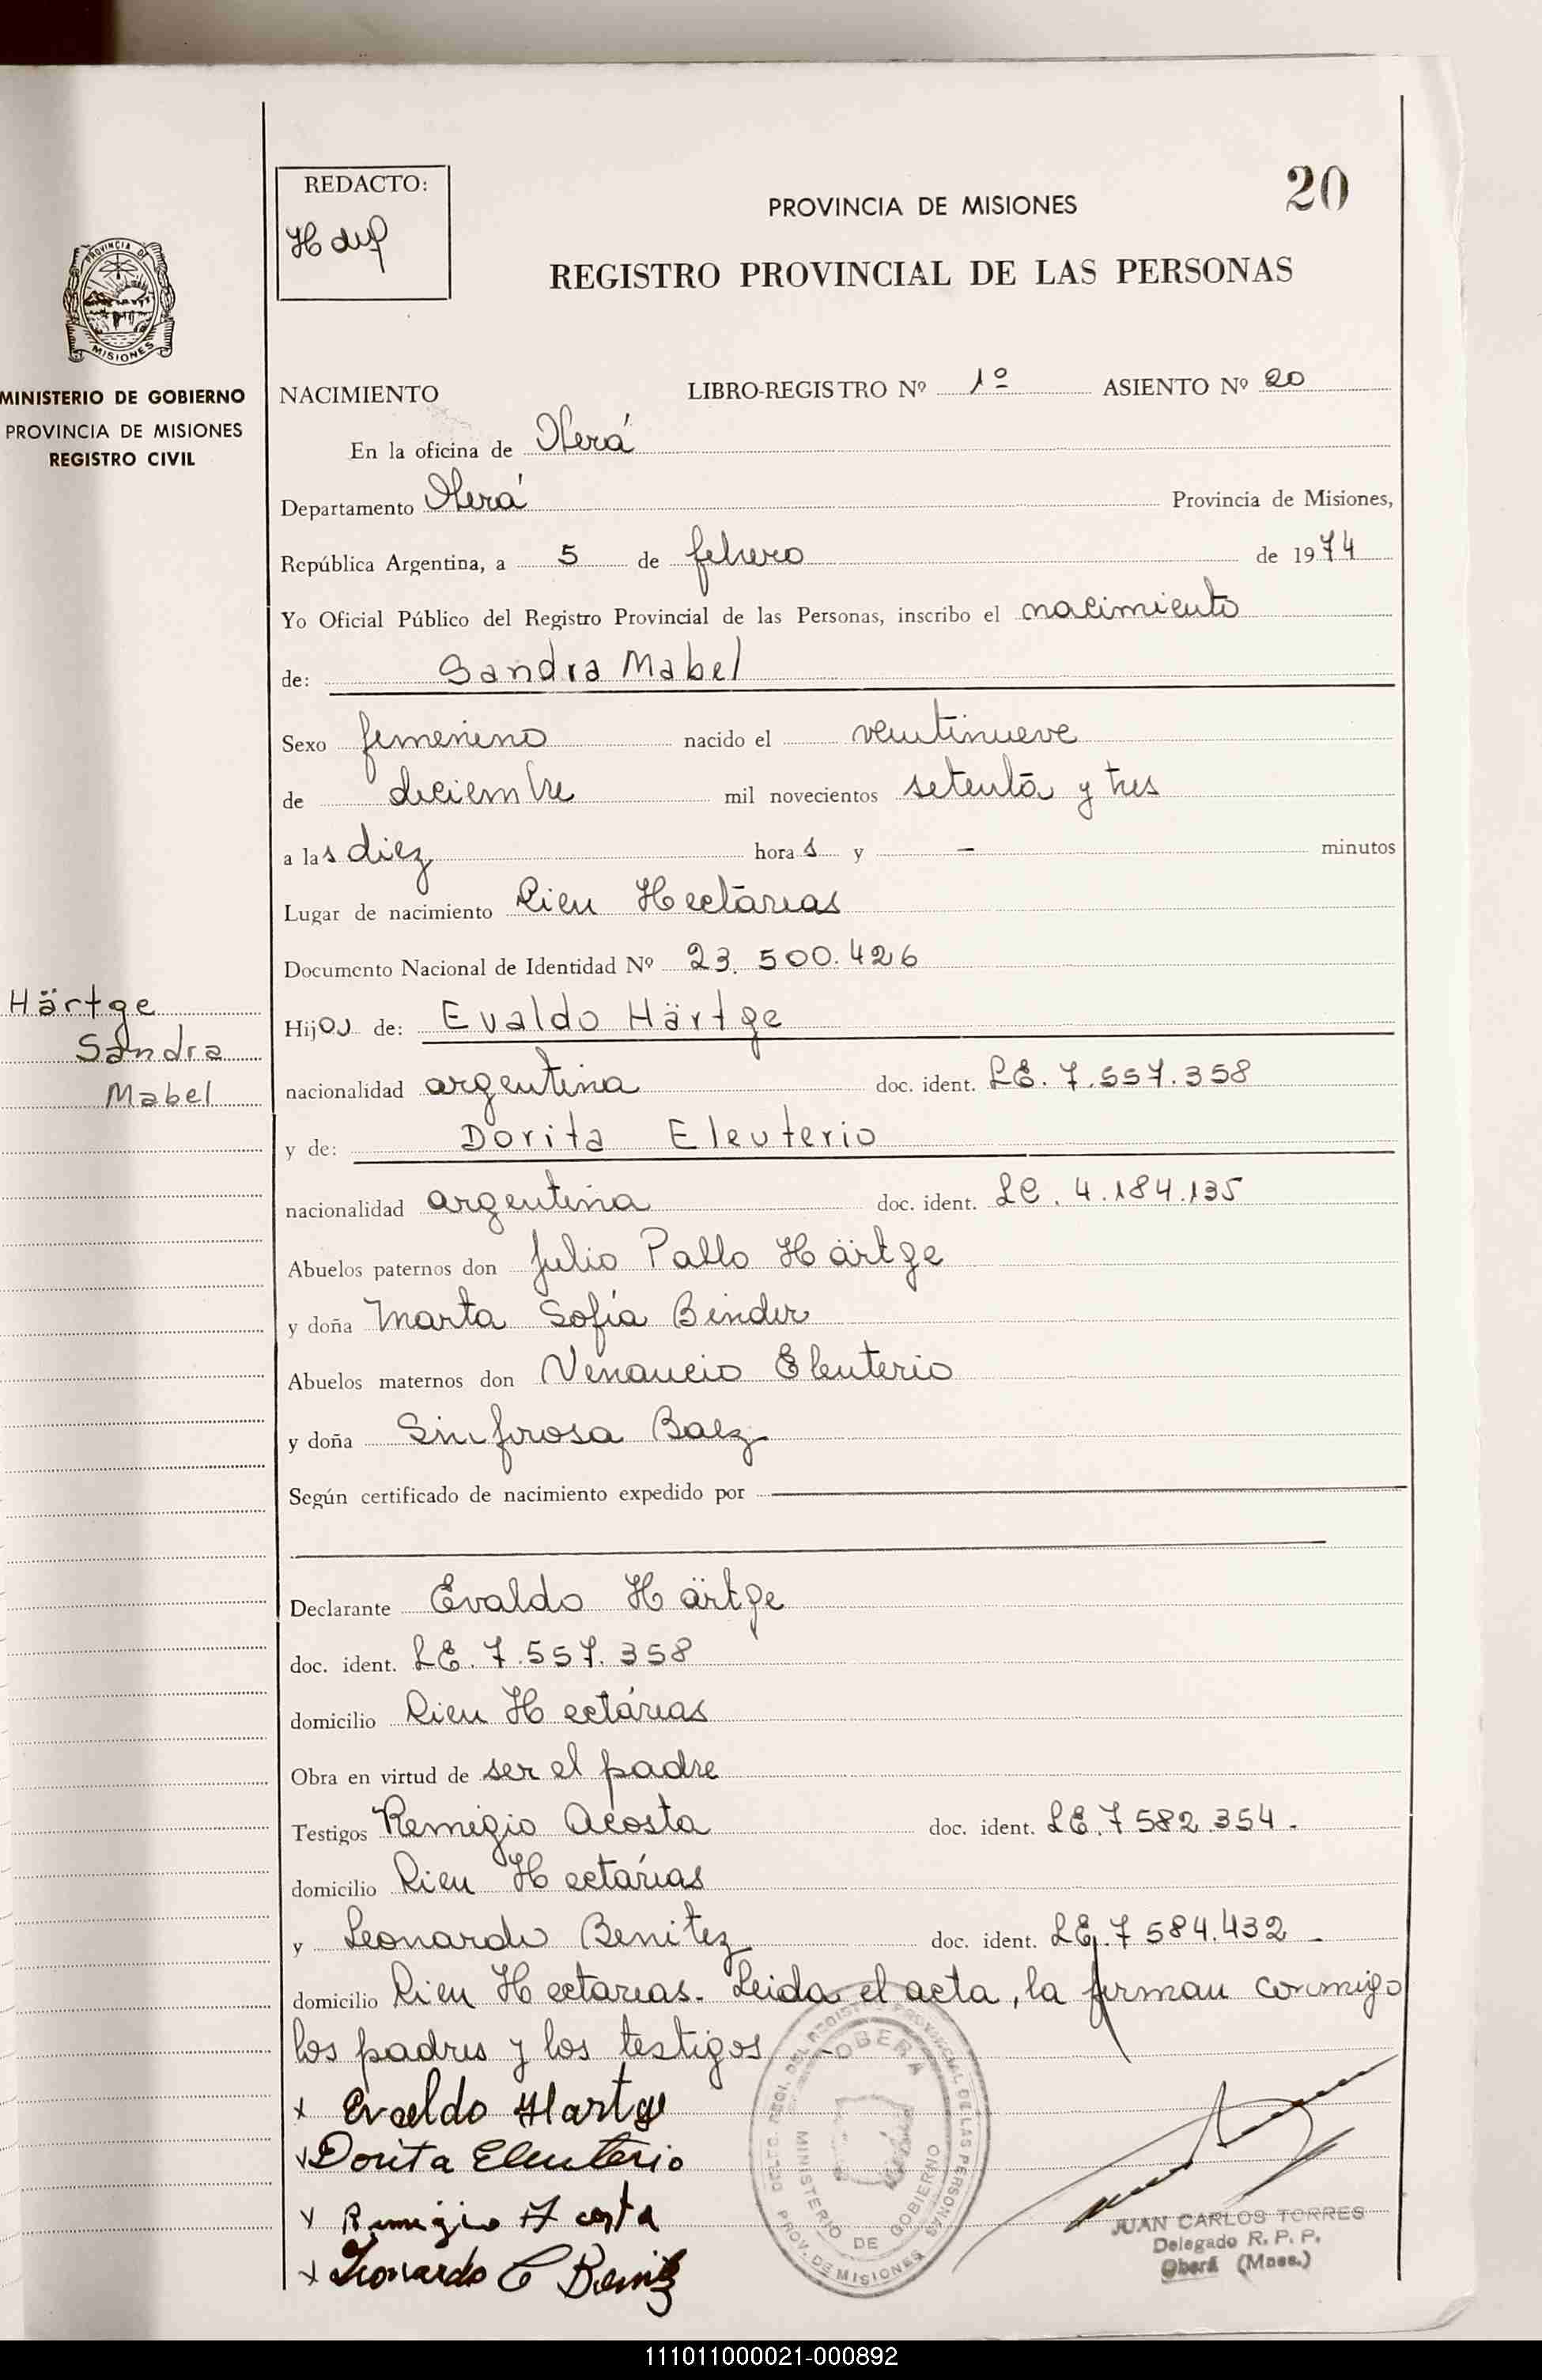 REDACTO:
20
PROVINCIA DE MISIONES
REGISTRO PROVINCIAL DE LAS PERSONAS
PROVINCIA DE
MISIONES
MINISTERIO DE GOBIERNO
PROVINCIA DE MISIONES
REGISTRO CIVIL
NACIMIENTO LIBRO-REGISTRO Nº 1º ASIENTO Nº 20
En la oficina de Oberá
Departamento Oberá Provincia de Misiones,
República Argentina, a 5 de febrero de 1974
Yo Oficial Público del Registro Provincial de las Personas, inscribo el nacimiento
de: Sandra Mabel
Sexo femenino nacido el veintinueve
de diciembre mil novecientos setenta y tres
a las diez horas y - minutos
Lugar de nacimiento Cien Hectáreas
Documento Nacional de Identidad Nº 23.500.426
Härtge
Sandra
Mabel
Hija de: Evaldo Härtge
nacionalidad argentina doc. ident. LE. 7.557.358
y de: Dorita Eleuterio
nacionalidad argentina doc. ident. LC. 4.184.135
Abuelos paternos don Julio Pablo Härtge
y doña Marta Sofía Binder
Abuelos maternos don Venancio Eleuterio
y doña Sinforosa Baez
Según certificado de nacimiento expedido por
Declarante Evaldo Härtge
doc. ident. LE. 7.557.358
domicilio Cien Hectáreas
Obra en virtud de ser el padre
Testigos Remigio Acosta doc. ident. LE. 7582.354.
domicilio Cien Hectáreas
y Leonardo Benitez doc. ident. LE. 7584.432
domicilio Cien Hectareas. Leida el acta, la firman conmigo
los padres y los testigos.-
x Evaldo Hartge
x Dorita Eleuterio
x Remigio Acosta
x Leonardo C Beniz
OBERA
MINISTERIO DE GOBIERNO
DELEG. REGI. DEL REGISTRO PROVINCIAL DE LAS PERSONAS
PROV. DE MISIONES
JUAN CARLOS TORRES
Delegado R. P. P.
Oberá (Mnes.)
111011000021-000892